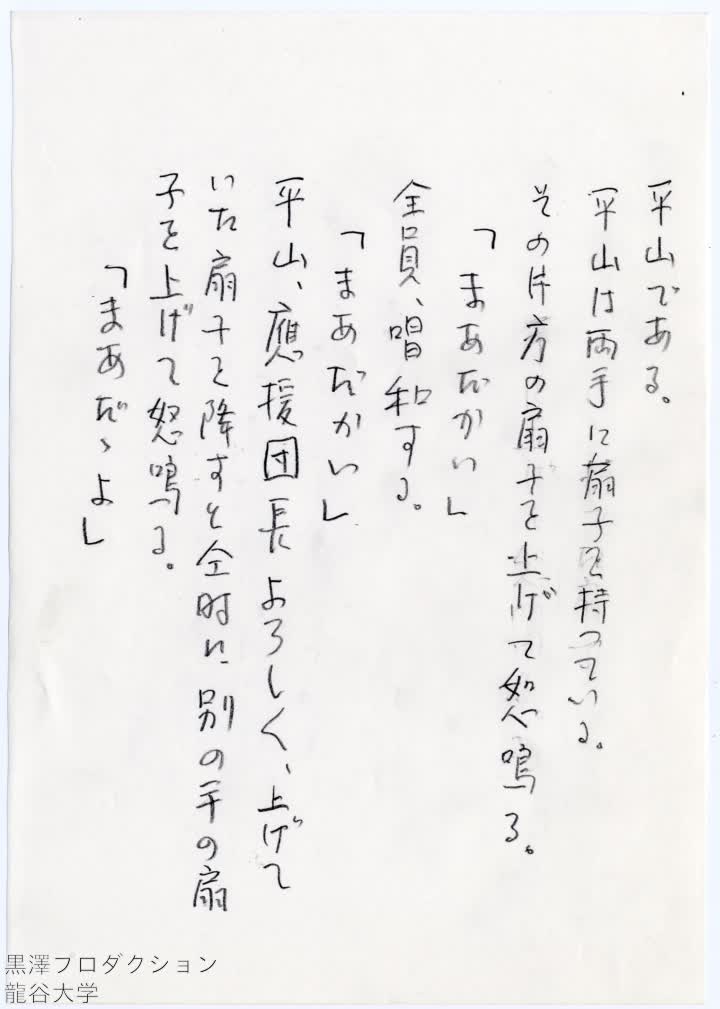 平山である。
平山は両手に扇子を持っている。
その片方の扇子を上げて怒鳴る。
「まあだかい」
全員、唱和する。
「まあだかい」
平山、應援団長よろしく、上げて
いた扇子を降すと仝時に別の手の扇
子を上げて怒鳴る。
「まあだゝよ」
黒澤プロダクション
龍谷大学